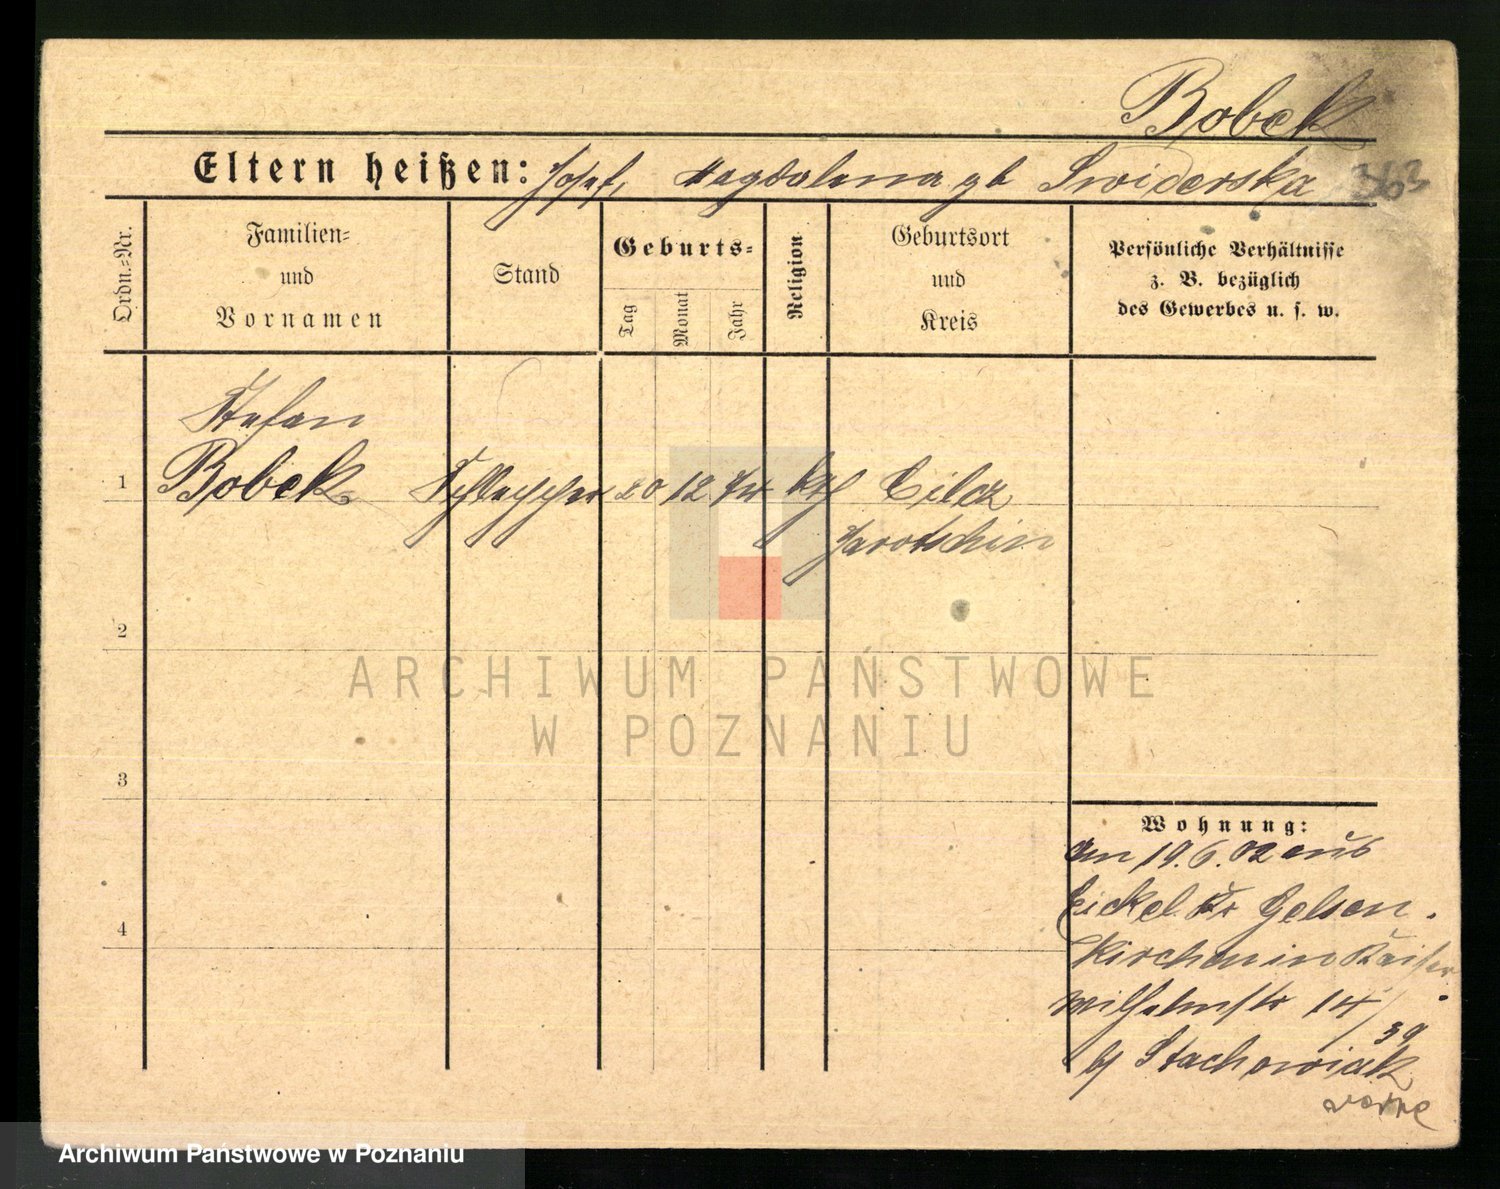 Bobek
Eltern heißen: Josef, Magdalena gb Swiderska 363
Ordn.=Nr.
Familien=
und
Vornamen
Stand
Geburts=
Tag
Monat
Jahr
Religion
Geburtsort
und
Kreis
Persönliche Verhältnisse
z. B. bezüglich
des Gewerbes u. s. w.
Stefan
1 Bobek Schlepper 20 12 kth Cilcz
Jarotschin
2
3
4
ARCHIWUM PAŃSTWOWE
W POZNANIU
Wohnung:
am 19.6.02 aus
Eickel Kr Gelsen
kirchen in Kaiser
Wilhelmstr 14/39
by Stachowiak
Archiwum Państwowe w Poznaniu